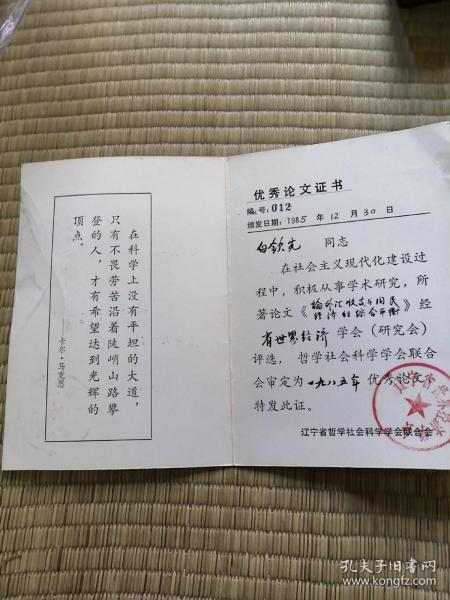 在科学上没有平坦的大道，
只有不畏劳苦沿着陡峭山路攀
登的人，才有希望达到光辉的
顶点。
卡尔·马克思
优秀论文证书
编号：012
颁发日期：1985 年 12 月 30 日
白钦先 同志
在社会主义现代化建设过
程中，积极从事学术研究，所
著论文《论外汇收支与国民
经济的综合平衡》经
省世界经济 学会（研究会）
评选，哲学社会科学学会联合
会审定为一九八五年 优秀论文，
特发此证。
辽宁省哲学社会科学学会联合会
孔夫子旧书网
www.kongfz.com